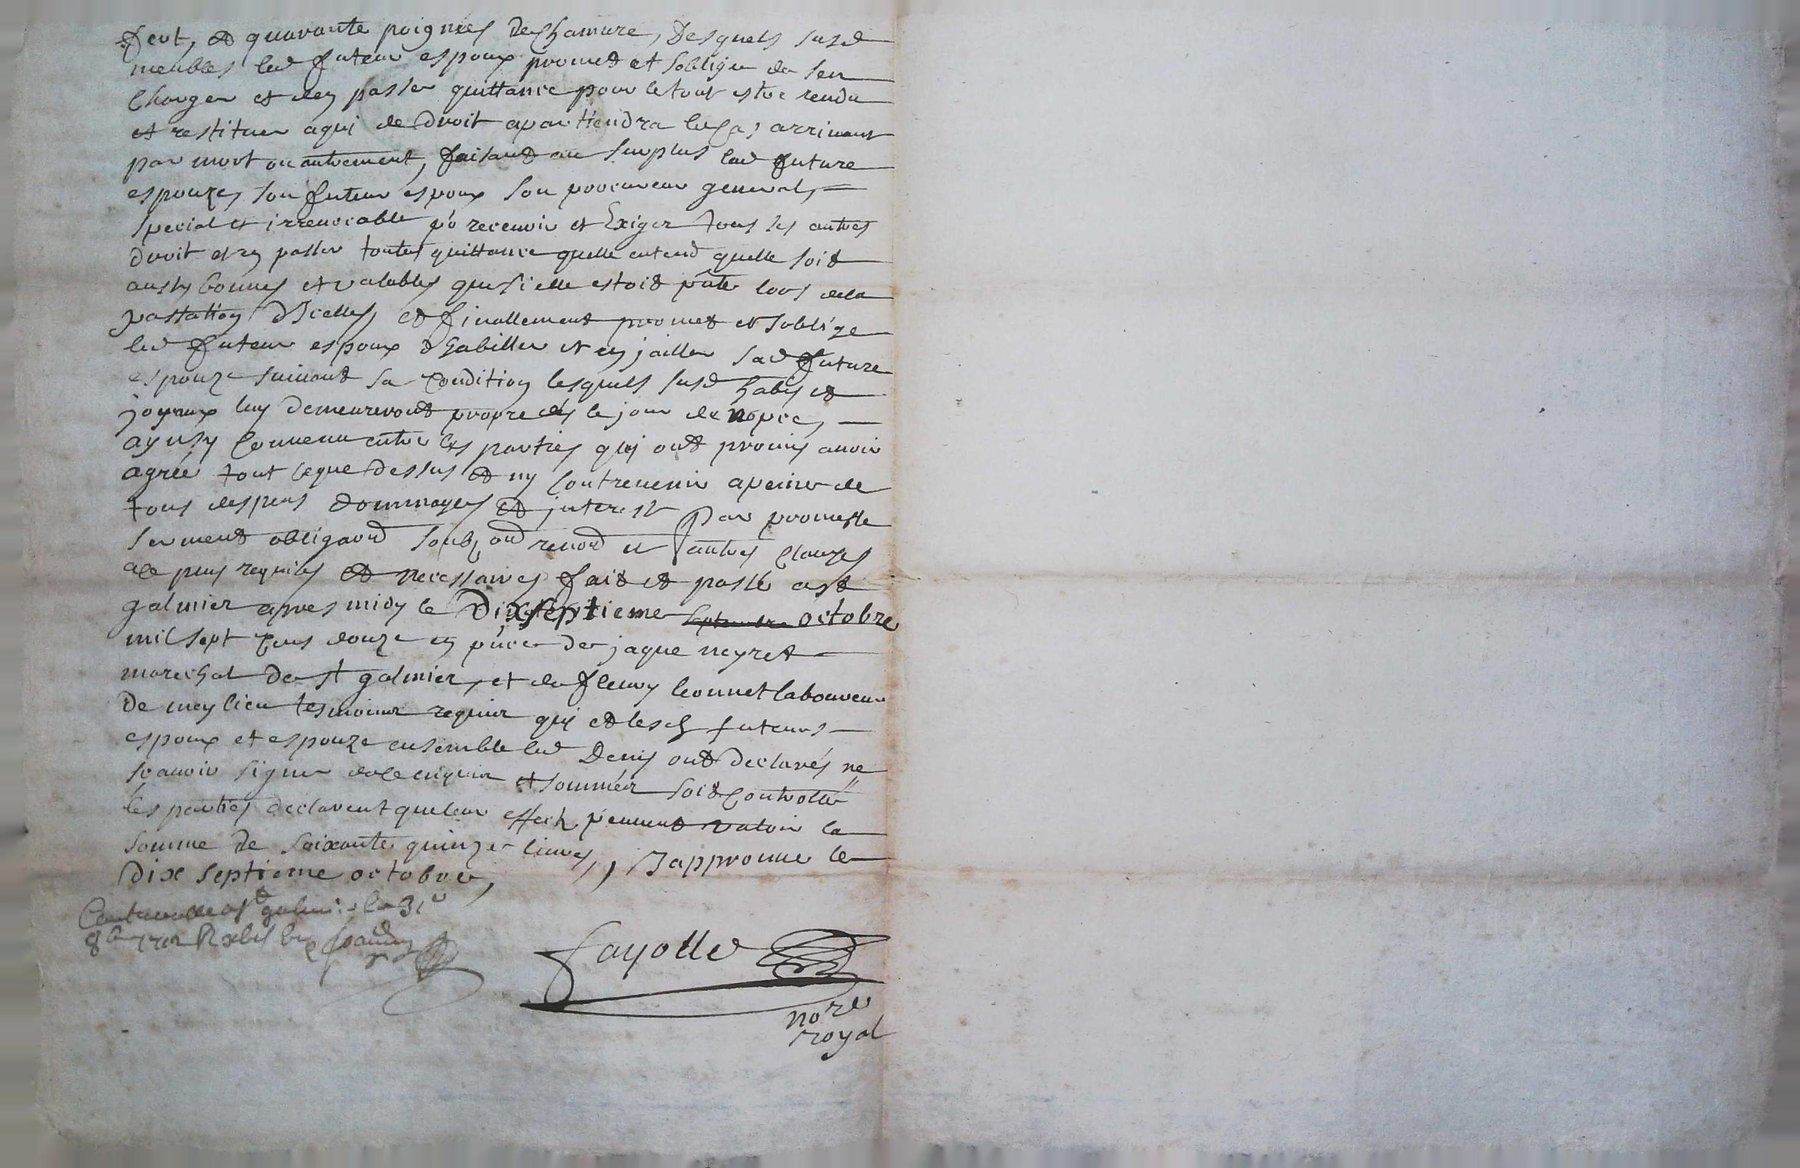 et quarante poignées de Chamure, desquels susd
meubles led futeur espoux promet et soblige de sen
Charger et den passer quittance pour le tout estre rendu
et restituer a qui de droit apartiendra le cas arrivant
par mort ou autrement, faisant au surplus lad future
espouze, son futeur espoux son procureur general,
special et irrevocable po recevoir et Exiger tous ses autres
droit et en passer toutes quittance quelle entend quelle soit
aussy bonnes et valables que si elle estoit pnte lors de la
passation Dicelles, et finallement promet et soblige
led futeur espoux dhabiller et enjailler sad future
espouze suivant sa Condition lesquels susd habis et
joyaux luy demeureront propre dés le jour de nopce,
aynsy Convenu entre les parties qui ont promis avoir
agréé tout ceque dessus et ny Contrevenir a peine de
tous despens dommages et interest Par promesse
serment obligaond soubzond renond et autres Clauzes
a ce plus requises et necessaires fait et passé a st
galmier apres midy le Dixseptieme septembre octobre
mil sept Cens douze en pnce de jaque neyret
marechal de st galmier, et de fleury leonnet laboureur
de meylieu tesmoins requis qui et lesd futeurs
espoux et espouze ensemble led Denis ont declarés ne
scavoir signer de ce enquis et sommés soit Controllé
les parties declarent que leur effect peuvent valoir la
somme de soixante quinze livres, Japprouve le
Dix septieme octobre,
Controllé a st galmier le 31e
8bre 1712 R
fayolle
nore
royal